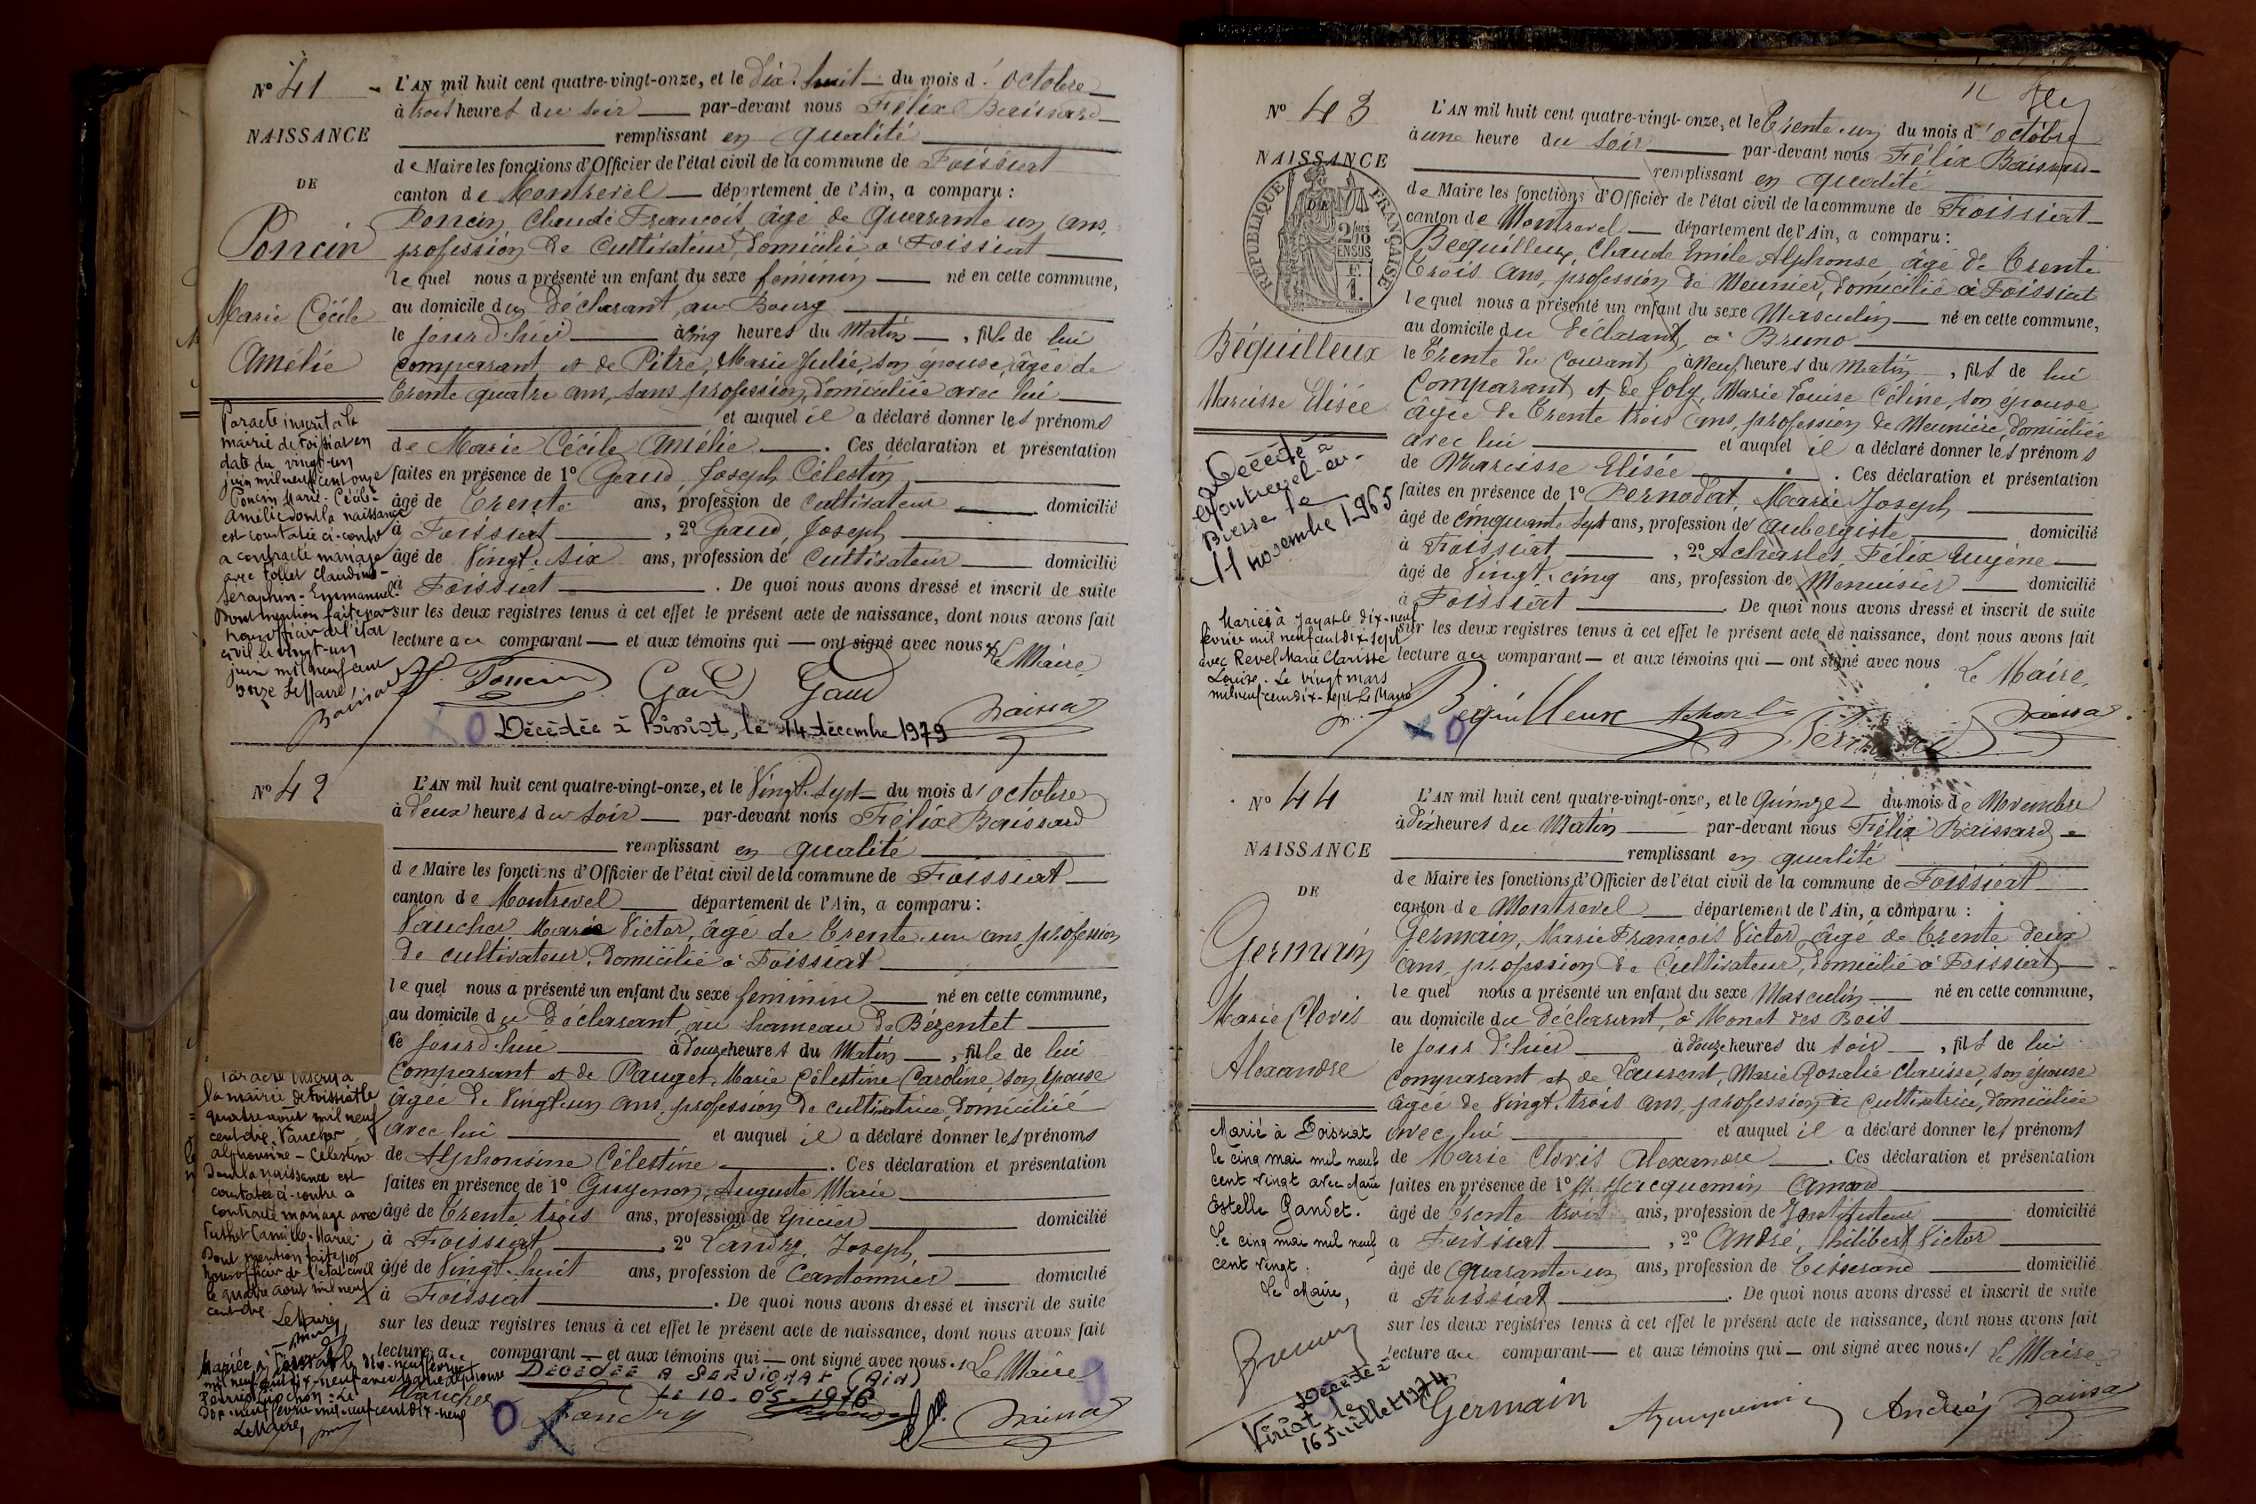 N° 41
NAISSANCE
DE
Poncin
Marie Cécile
Amélie
Par acte inscrit à la
mairie de Foissiat en
date du vingt-un
juin mil neuf cent onze
Poncin Marie-Cécile-
Amélie dont la naissance
est constatée ci-contre
a contracté mariage
avec Follet Claudius-
Séraphin-Emmanuel.
Dont mention faite par
nous officier de l'état
civil le vingt-un
juin mil neuf cent
onze
L'AN mil huit cent quatre-vingt-onze, et le dix-huit du mois d'octobre
à trois heures du soir par-devant nous Félix Baissard
remplissant en qualité
de Maire les fonctions d'Officier de l'état civil de la commune de Foissiat
canton de Montrevel département de l'Ain, a comparu :
Poncin Claude François âgé de Quarante un ans,
profession de Cultivateur, domicilié à Foissiat
lequel nous a présenté un enfant du sexe féminin né en cette commune,
au domicile du Déclarant, au Bourg
le jourd'hui à cinq heures du Matin, fille de lui
Comparant et de Pitre, Marie Julie, son épouse, âgée de
Trente quatre ans, sans profession, domiciliée avec lui
et auquel il a déclaré donner les prénoms
de Marie Cécile Amélie. Ces déclaration et présentation
faites en présence de 1° Gaud, Joseph Célestin
âgé de Trente ans, profession de Cultivateur domicilié
à Foissiat, 2° Gaud, Joseph
âgé de Vingt-six ans, profession de Cultivateur domicilié
à Foissiat. De quoi nous avons dressé et inscrit de suite
sur les deux registres tenus à cet effet le présent acte de naissance, dont nous avons fait
lecture au comparant et aux témoins qui ont signé avec nous. Le Maire,
Poncin Gaud Gaud
Décédée à Foissiat, le 14 décembre 1979
N° 42
Par acte inscrit à
la mairie de Foissiat le
quatre août mil neuf
cent dix. Vaucher
Alphonsine-Célestine
dont la naissance est
constatée ci-contre a
contracté mariage avec
Camille-Marie-
Dont mention faite par
nous officier de l'état civil
le quatre août mil neuf
cent dix.
Le Maire,
Mariée à Foissiat le dix-neuf février
mil neuf cent dix-neuf avec
Le
Dix-neuf février mil neuf cent dix-neuf
Le Maire,
L'AN mil huit cent quatre-vingt-onze, et le Vingt-sept du mois d'octobre
à deux heures du soir par-devant nous Félix Baissard
remplissant en qualité
de Maire les fonctions d'Officier de l'état civil de la commune de Foissiat
canton de Montrevel département de l'Ain, a comparu :
Vaucher, Marie Victor, âgé de Trente-un ans, profession
de cultivateur, domicilié à Foissiat
lequel nous a présenté un enfant du sexe féminin né en cette commune,
au domicile du Déclarant, au hameau de Bézentet
le jourd'hui à douze heures du Matin, fille de lui
Comparant et de Pauget, Marie Célestine Caroline, son épouse
âgée de Vingt-un ans, profession de cultivatrice, domiciliée
avec lui et auquel il a déclaré donner les prénoms
de Alphonsine Célestine. Ces déclaration et présentation
faites en présence de 1° Guyenon, Auguste Marie
âgé de Trente trois ans, profession de Epicier domicilié
à Foissiat, 2° Landry, Joseph,
âgé de Vingt-huit ans, profession de Cantonnier domicilié
à Foissiat. De quoi nous avons dressé et inscrit de suite
sur les deux registres tenus à cet effet le présent acte de naissance, dont nous avons fait
lecture au comparant et aux témoins qui ont signé avec nous. Le Maire
DÉCÉDÉE A SERVIGNAT (Ain)
Le 10-05-1976
Vaucher Landry
N° 43
NAISSANCE
DE
RÉPUBLIQUE FRANÇAISE
2/10
EN SUS
Béquilleux
Narcisse Elisée
Décédé à
Montrevel-en-
Bresse le
11 novembre 1965
Mariés à Jayat le dix-neuf
février mil neuf cent dix-sept
avec Revel Marie Clarisse
Louise. Le vingt mars
mil neuf cent dix-sept Le Maire
L'AN mil huit cent quatre-vingt-onze, et le Trente-un du mois d'octobre
à une heure du soir par-devant nous Félix Baissard
remplissant en qualité
de Maire les fonctions d'Officier de l'état civil de la commune de Foissiat
canton de Montrevel département de l'Ain, a comparu :
Bequilleux, Claude Emile Alphonse, âgé de Trente
Trois ans, profession de Meunier, domicilié à Foissiat
lequel nous a présenté un enfant du sexe Masculin né en cette commune,
au domicile du Déclarant, à Bruno
le Trente du Courant, à neuf heures du matin, fils de lui
Comparant et de Joly, Marie Louise Céline, son épouse
âgée de Trente trois ans, profession de Meunière, domiciliée
avec lui et auquel il a déclaré donner les prénoms
de Narcisse Elisée. Ces déclaration et présentation
faites en présence de 1° Pernodat, Marie Joseph
âgé de cinquante sept ans, profession de Aubergiste domicilié
à Foissiat, 2° Acharles Félix Eugène
âgé de Vingt-cinq ans, profession de Menuisier domicilié
à Foissiat. De quoi nous avons dressé et inscrit de suite
sur les deux registres tenus à cet effet le présent acte de naissance, dont nous avons fait
lecture au comparant et aux témoins qui ont signé avec nous Le Maire,
Béquilleux
N° 44
NAISSANCE
DE
Germain
Marie Clovis
Alexandre
Marié à Foissiat
le cinq mai mil neuf
cent vingt avec Marie
Estelle Gandet.
Le cinq mai mil neuf
cent vingt.
Le Maire,
Décédé à
Viriat le
16 Juillet 1974
L'AN mil huit cent quatre-vingt-onze, et le Quinze du mois de Novembre
à dix heures du Matin par-devant nous Félix Baissard
remplissant en qualité
de Maire les fonctions d'Officier de l'état civil de la commune de Foissiat
canton de Montrevel département de l'Ain, a comparu :
Germain, Marie François Victor, âgé de Trente deux
ans, profession de Cultivateur, domicilié à Foissiat
lequel nous a présenté un enfant du sexe Masculin né en cette commune,
au domicile du Déclarant, à Monet des Bois
le jour d'hier à douze heures du soir, fils de lui
comparant et de Laurent, Marie Rosalie Clarisse, son épouse
âgée de Vingt-trois ans, profession de Cultivatrice, domiciliée
avec lui et auquel il a déclaré donner les prénoms
de Marie Clovis Alexandre. Ces déclaration et présentation
faites en présence de 1° Jacquemin Amand
âgé de Trente trois ans, profession de Instituteur domicilié
à Foissiat, 2° André, Philibert Victor
âgé de Quarante-un ans, profession de Tisserand domicilié
à Foissiat. De quoi nous avons dressé et inscrit de suite
sur les deux registres tenus à cet effet le présent acte de naissance, dont nous avons fait
lecture au comparant et aux témoins qui ont signé avec nous. Le Maire
Germain Ajacquemin André